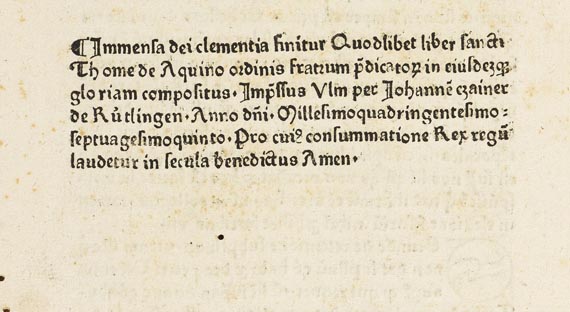 ¶Immensa dei clementia finitur Quodlibet liber sancti
Thome de Aquino ordinis fratrum p̄dicatoꝝ in eiusdemqꝫ
gloriam compositus. Imp̄ssus Vlm per Johannē czainer
de Rütlingen. Anno dñi. Millesimoquadringentesimo⸗
septuagesimoquinto. Pro cuiꝰ consummatione Rex regū
laudetur in secula benedictus Amen.